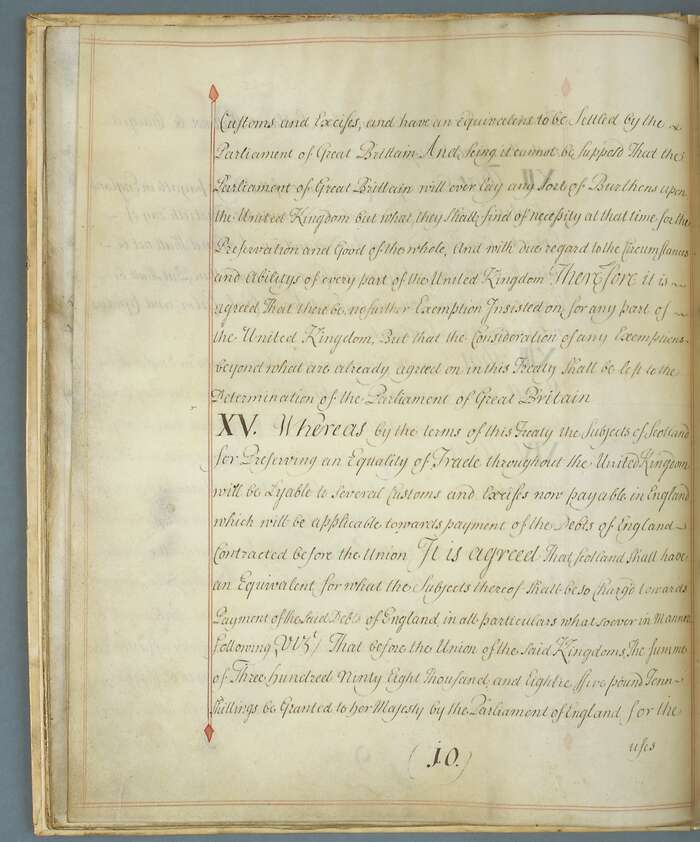 Customs and Excises, and have an Equivalent to be Settled by the
Parliament of Great Brittain And, being it cannot be Supposd That the
Parliament of Great Brittain will ever lay any Sort of Burthens upon
the United Kingdom but what, they Shall find of necessity at that time for the
Preservation and Good of the whole, And with due regard to the Circumstances
and Abilitys of every part of the United Kingdom Therefore it is
agreed That there be, no further Exemption Insisted on, for any part of
the United Kingdom, But that the Consideration of any Exemptions
beyond what are already agreed on in this Treaty Shall be left to the
Determination of the Parliament of Great Britain
XV. Whereas by the terms of this Treaty the Subjects of Scotland
for Preserving an Equality of Trade throughout the United Kingdom
will be Lyable to Several Customs and Excises now payable in England
which will be applicable towards payment of the Debts of England
Contracted before the Union It is agreed That Scotland Shall have
an Equivalent for what the Subjects thereof Shall be so Chargd towards
Payment of the Said Debts of England, in all particulars whatsoever in Manner
following Vizt That before the Union of the Said Kingdoms, The Summ
of Three hundred Ninty Eight Thousand and Eightie ffive pound Tenn
Shillings, be Granted to her Majesty by the Parliament of England, for the
uses
(10.)